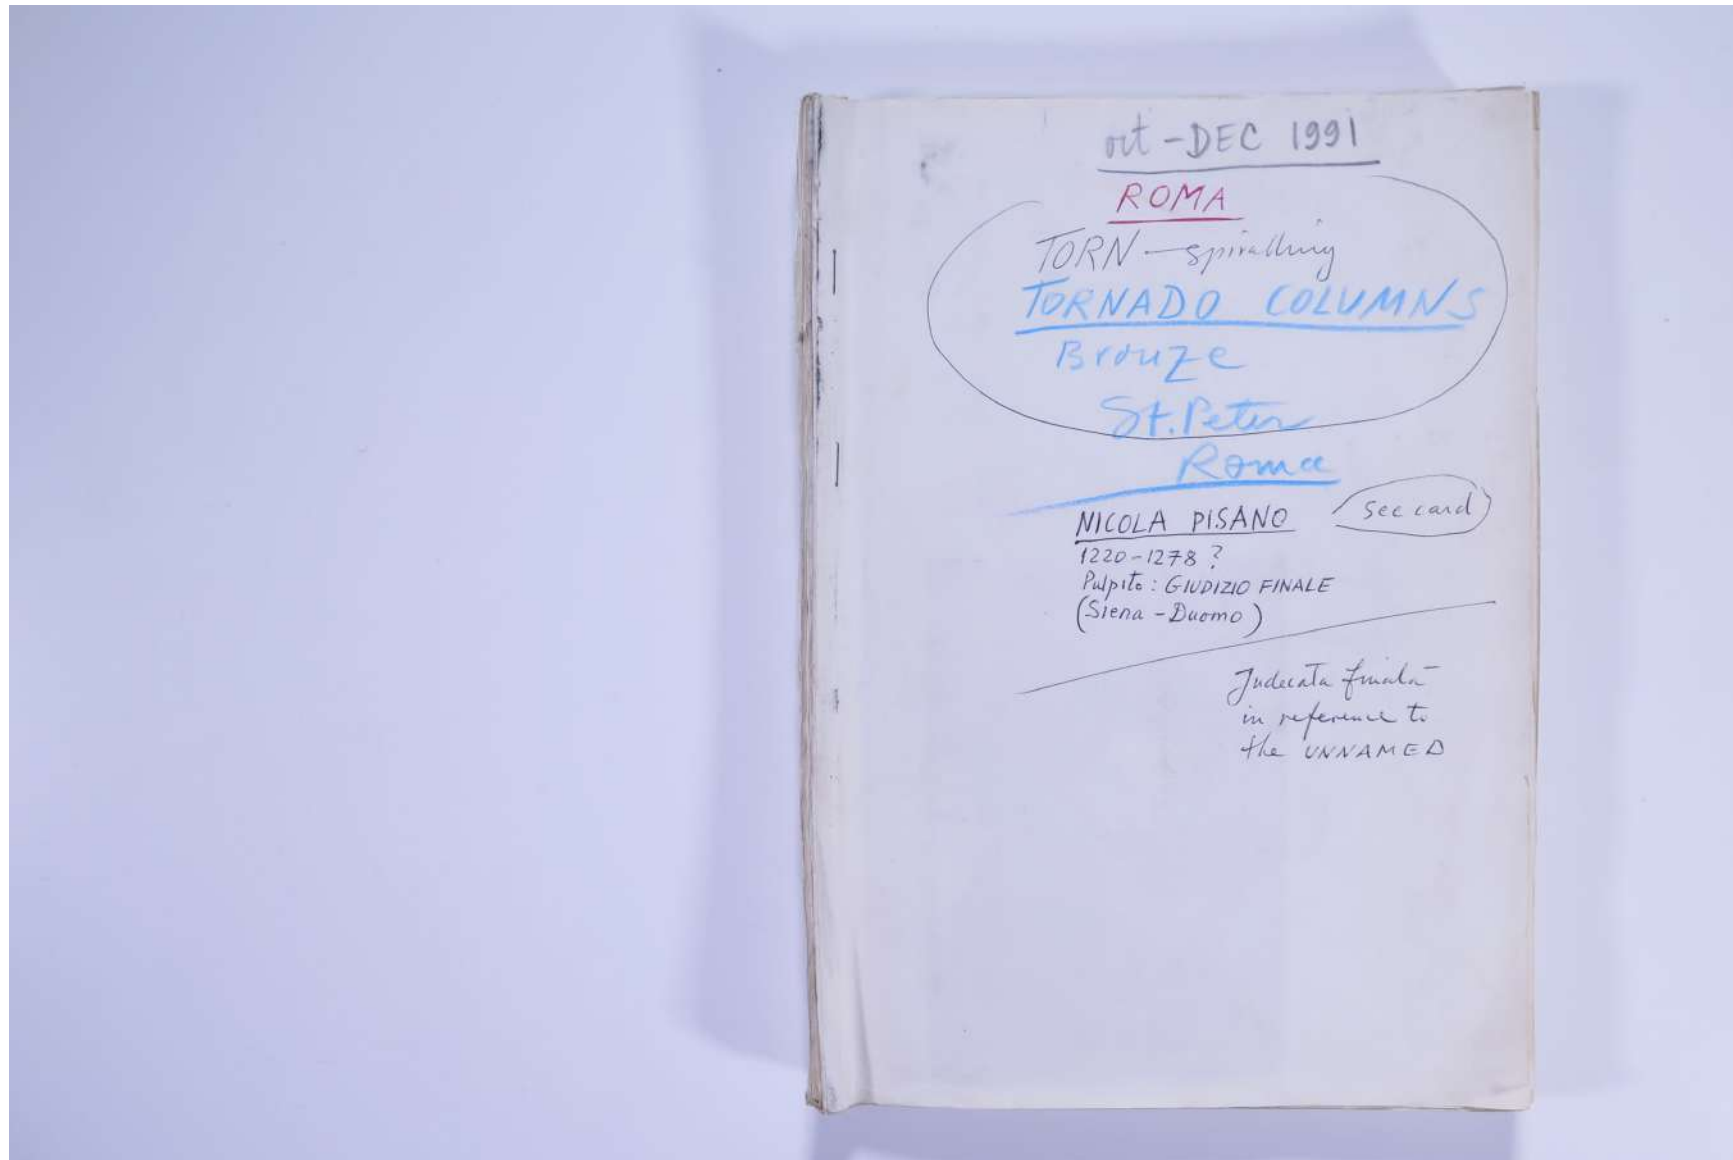 oct - DEC 1991
ROMA
TORN - spiralling
TORNADO COLUMNS
Bronze
St. Peter
Roma
NICOLA PISANO see card
1220-1278 ?
Pulpito : GIUDIZIO FINALE
(Siena - Duomo)
Judecata finală
in reference to
the UNNAMED